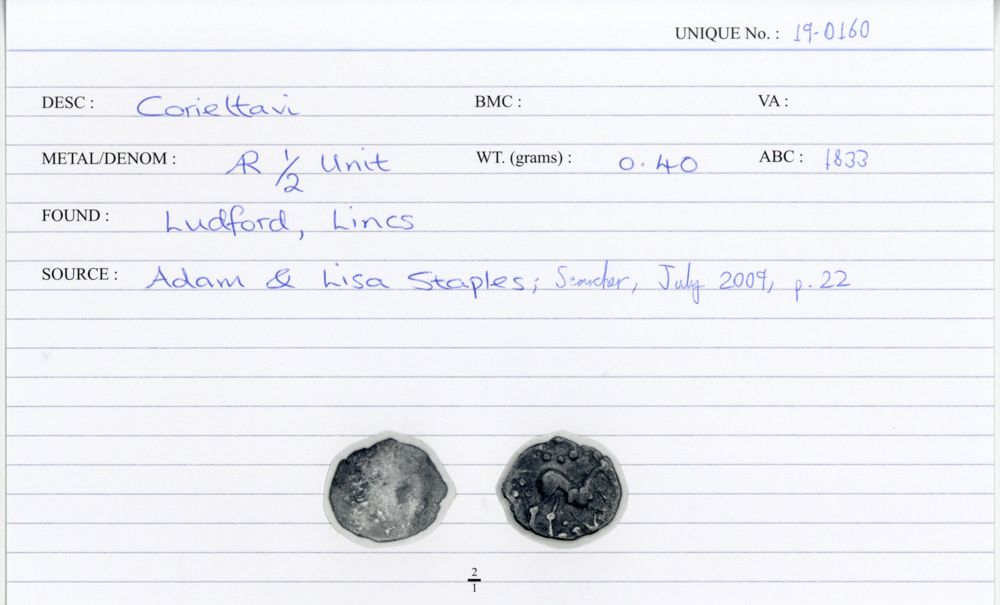 UNIQUE No. : 19-0160
DESC : Corieltavi BMC : VA :
METAL/DENOM : AR 1/2 Unit WT. (grams) : 0.40 ABC : 1833
FOUND : Ludford, Lincs
SOURCE : Adam & Lisa Staples; Searcher, July 2009, p.22
2
1